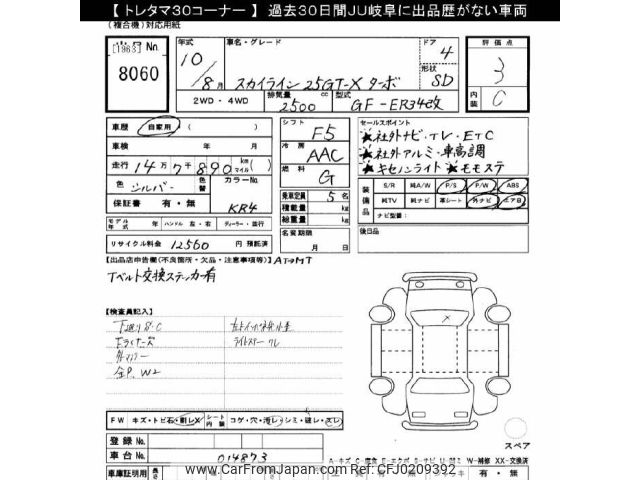 【 トレタマ30コーナー 】 過去30日間JU岐阜に出品歴がない車両
(複合機)対応用紙
[1963] No.
8060
年式 10 / 8月
車名・グレード
スカイライン 25GT-X ターボ
ドア 4
形状 SD
2WD・4WD
排気量 2500 cc
型式 GF-ER34改
評価点 3
内装 C
車歴 自家用 ( )
車検 年 月
走行 14万7千890 km マイル
色 シルバー 色替 カラーNo. KR4
保証書 有・無
モデル年式 年 ハンドル 左・右 ディーラー・並行
リサイクル料金 12560 円 預託済
シフト F5
冷房 AAC
燃料 G
乗車定員 5 名
積載量 kg
総重量 kg
名変期限 月 日
セールスポイント
★社外ナビ・TV・ETC
★社外アルミ・車高調
★キセノンライト★モモステ
装備品
S/R 純A/W P/S P/W ABS
純TV 純ナビ 革シート 外ナビ エアB
ナビ型番:
後日品
【出品店申告欄(不良箇所・欠品・注意事項等)】 AT→MT
Tベルト交換ステッカー有
【検査員記入】
下廻りS・C
外マフラー
全P. W2
FW キズ・トビ石・割レX シート内装 コゲ・穴・汚レ・シミ・破レ・スレ
登録No.
車台No. 014873
スペア
W-補修 XX-交換済
車庫証明用 長さ 有・無
CarFromJapan
www.CarFromJapan.com Ref:CFJ09209392